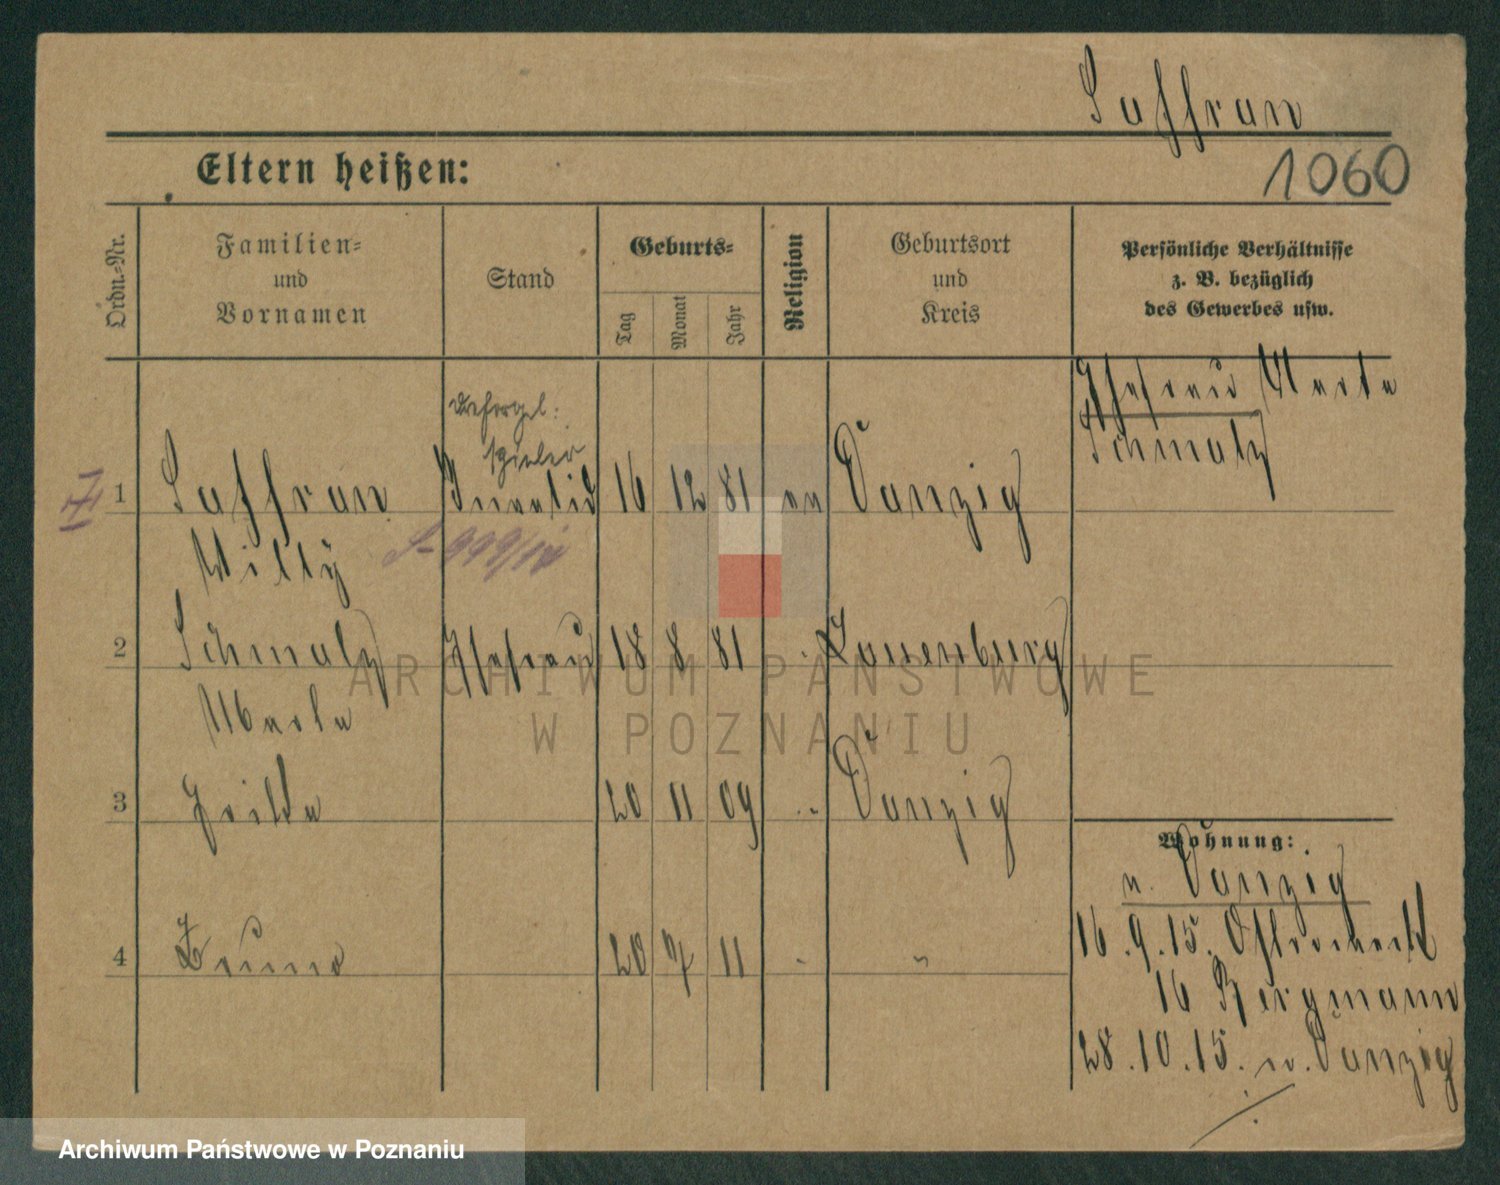 Saffran
Eltern heißen:
1060
Ordn.-Nr.
Familien-
und
Vornamen
Stand
Geburts-
Tag
Monat
Jahr
Religion
Geburtsort
und
Kreis
Persönliche Verhältnisse
z. B. bezüglich
des Gewerbes usw.
Ehefrau Marta
Schmalz
spieler
1 Saffran Invalid 16 12 81 ev Danzig
Willy
2 Schmalz Ehefrau 18 8 81 Lauenburg
3 20 11 09 " Danzig
Wohnung:
n. Danzig
4 Bruno 20 7 11 " "
16.9.15.
16 Bergmann
28.10.15. n. Danzig
ARCHIWUM PAŃSTWOWE
W POZNANIU
Archiwum Państwowe w Poznaniu